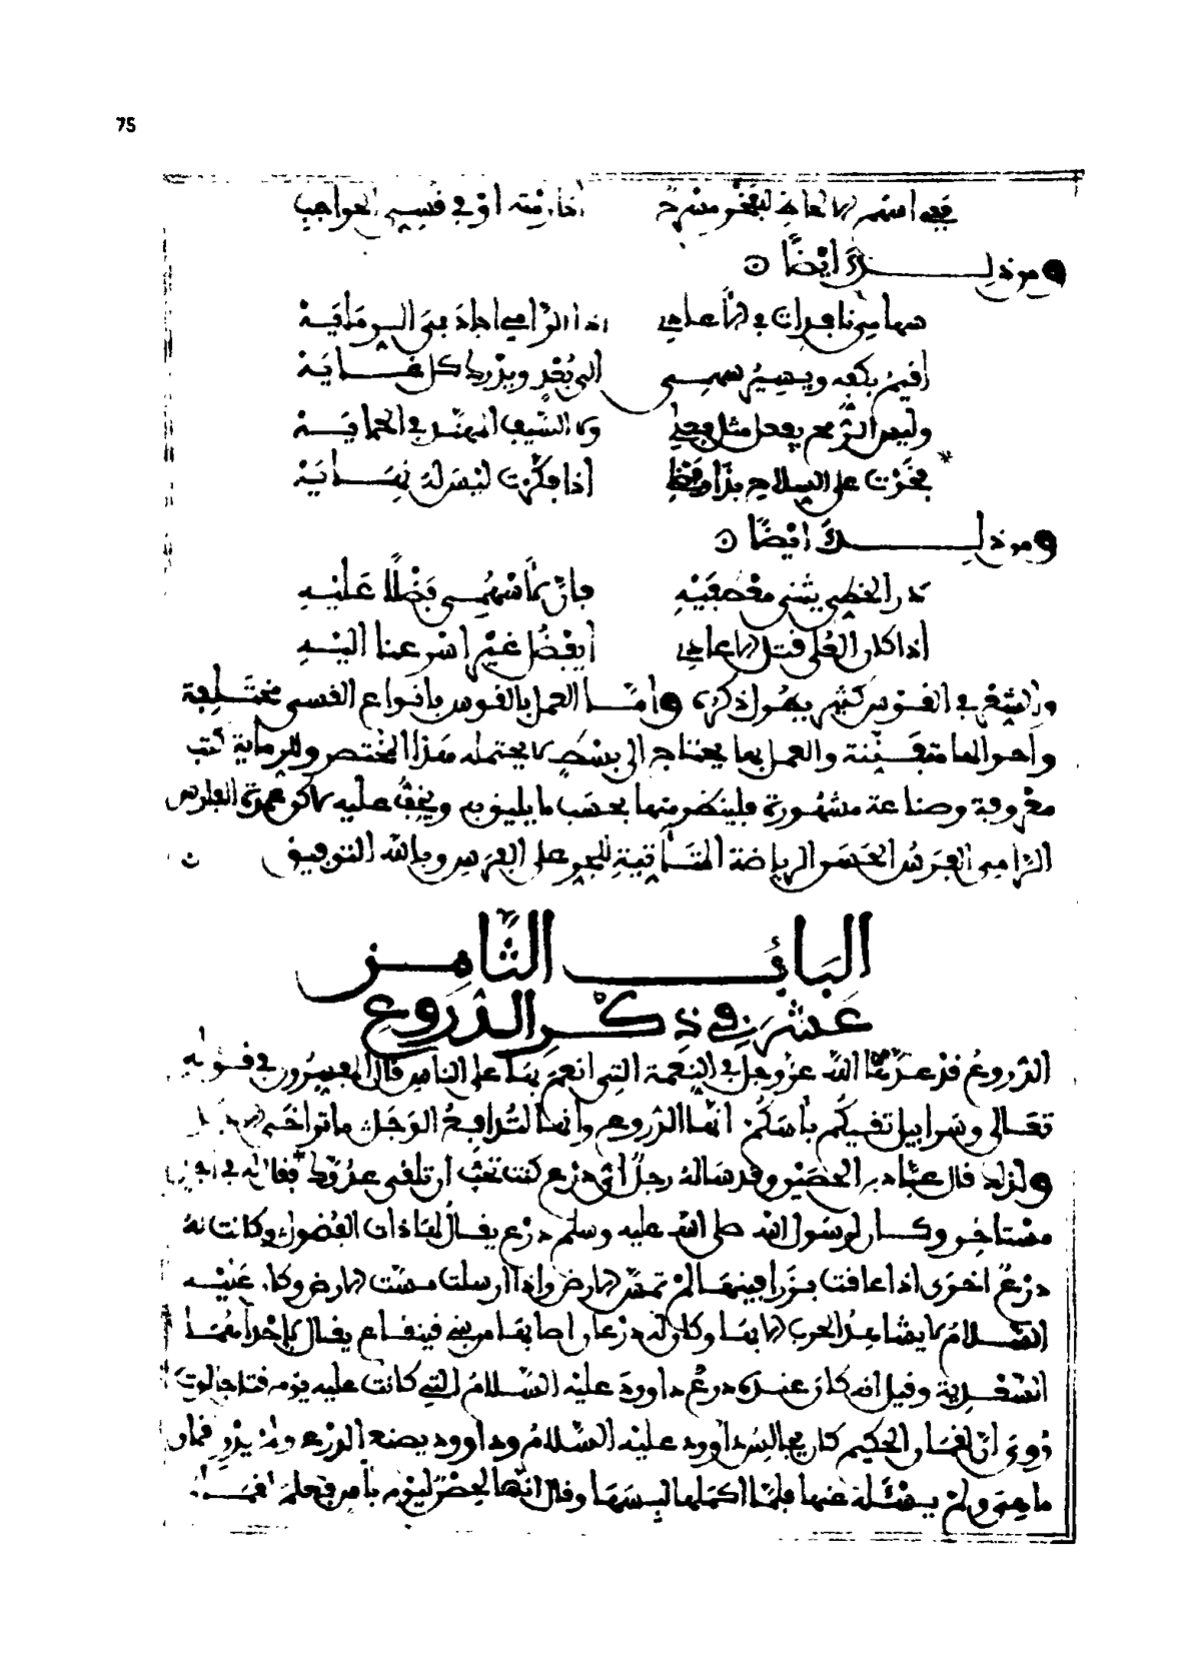 75
إذا رميته أو في قسي الحواجب
ومن ذلك أيضًا
سهامي نافذات في الأعادي إذا الرامي أجاد بي الرماية
أقيم بكفه ويسير سهمي إلى بعد ويدرك كل غاية
وليس الرمح يفعل مثل فعلي ولا السيف المهند في الحماية
فخرت على السلاح بذا وفضلي إذا فكرت ليس له نهاية
ومن ذلك أيضًا
ذر الخطي يثنى معطفيه فإن لأسهمي فضلًا عليه
إذا كان العلى قتل الأعادي أيفضل غير أسرعنا إليه
والشعر في القوس كثير يطول ذكره وأما العمل بالقوس بأنواع القسي مختلفة
وأحوالها متفننة والعمل بها يحتاج إلى بسط لا يحتمله هذا المختصر وللرماية كتب
معروفة وصناعة مشهورة فلينظر منها بحسب ما يليق به ويخف عليه لاكن عمدة الفارس
الرامي الفرس الحسن الرياضة المتأتية للجري على الفرس وبالله التوفيق
الباب الثامن
عشر في ذكر الدروع
الدروع قد عدها الله عز وجل في النعمة التي أنعم بها على الناس قال المفسرون في قوله
تعالى وسرابيل تقيكم بأسكم أنها الدروع وأنها لتدافع الوجل ما تراخى
ولذلك قال عباد بن الحصين وقد سأله رجل أي درع كنت تحب أن تلقى عدوك فقال له في أجل
مستأخر وكان لرسول الله صلى الله عليه وسلم درع يقال لها ذات الفضول وكانت له
درع أخرى إذا علقت بزرافينها لم تمس الأرض وإذا أرسلت مست الأرض وكان عليه
السلام لا يشاهد الحرب إلا بها وكان له درعان أصابها من بني قينقاع يقال لإحداهما
السغدية وقيل إنه كان عنده درع داوود عليه السلام التي كانت عليه يوم قتل جالوت
روي أن لقمان الحكيم كان يجالس داوود عليه السلام وداوود يصنع الدرع ولم يدر لقمان
ما هي ولم يسئله عنها فلما أكملها لبسها وقال إنها لحصن ليوم بأس فعلم لقمان